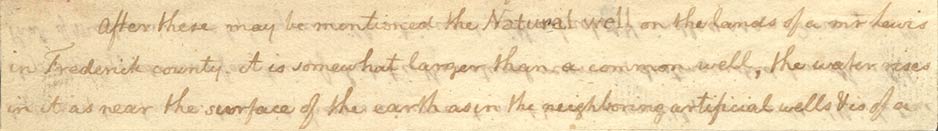 After these may be mentioned the Natural well on the lands of a mr Lewis
in Frederick county. it is somewhat larger than a common well, the water rises
in it as near the surface of the earth as in the neighboring artificial wells & is of a